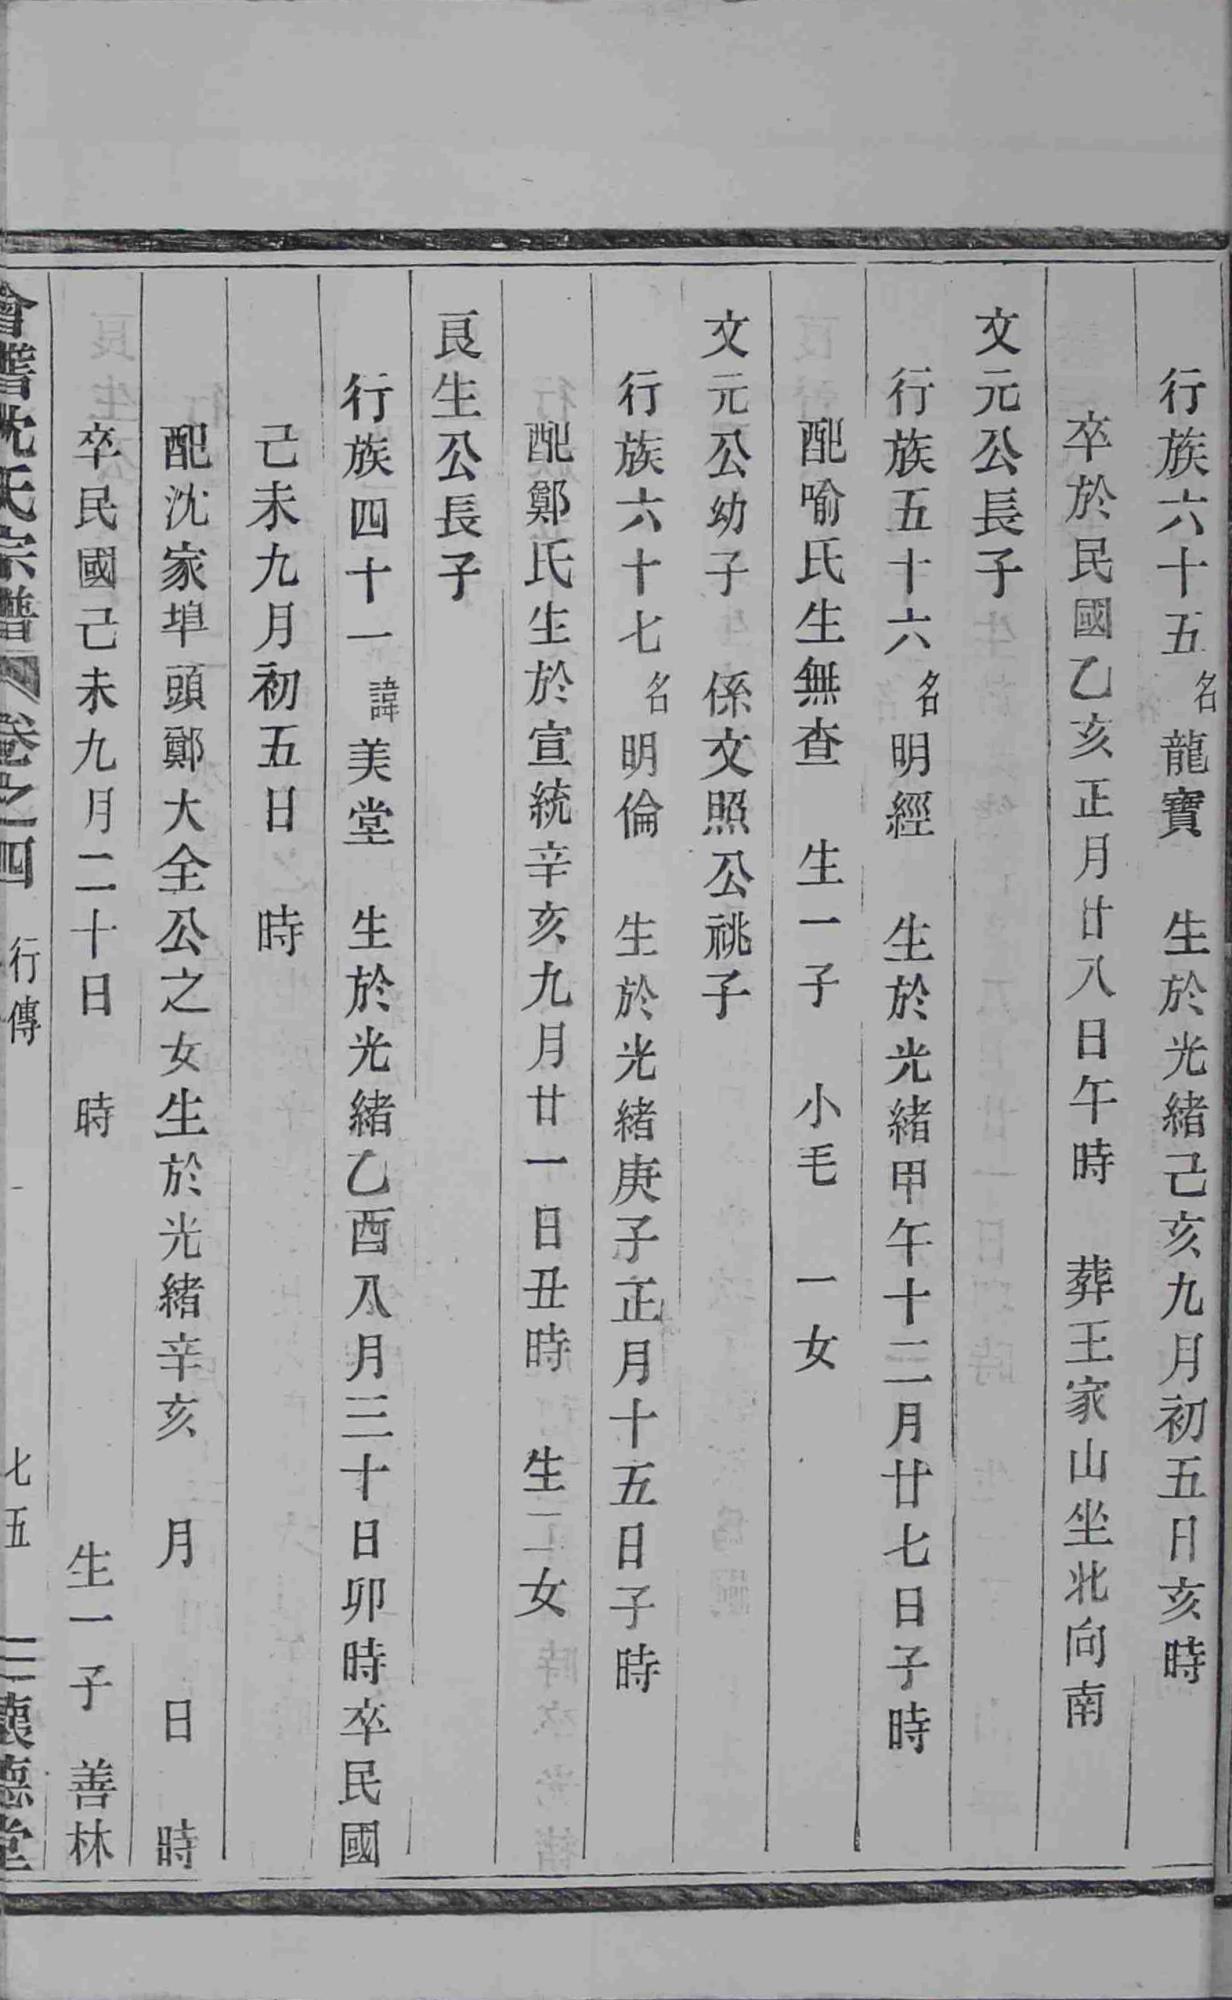 行族六十五名龍寶　生於光緒己亥九月初五日亥時
卒於民國乙亥正月廿八日午時　葬王家山坐北向南
文元公長子
行族五十六名明經　生於光緒甲午十二月廿七日子時
配喻氏生無查　生一子　小毛　一女
文元公幼子　係文照公祧子
行族六十七名明倫　生於光緒庚子正月十五日子時
配鄭氏生於宣統辛亥九月廿一日丑時　生二女
良生公長子
行族四十一諱美堂　生於光緒乙酉八月三十日卯時卒民國
己未九月初五日　時
配沈家埠頭鄭大全公之女生於光緒辛亥　月　日　時
卒民國己未九月二十日　時　生一子　善林
會稽沈氏宗譜　卷之四　行傳　七五　三懷德堂